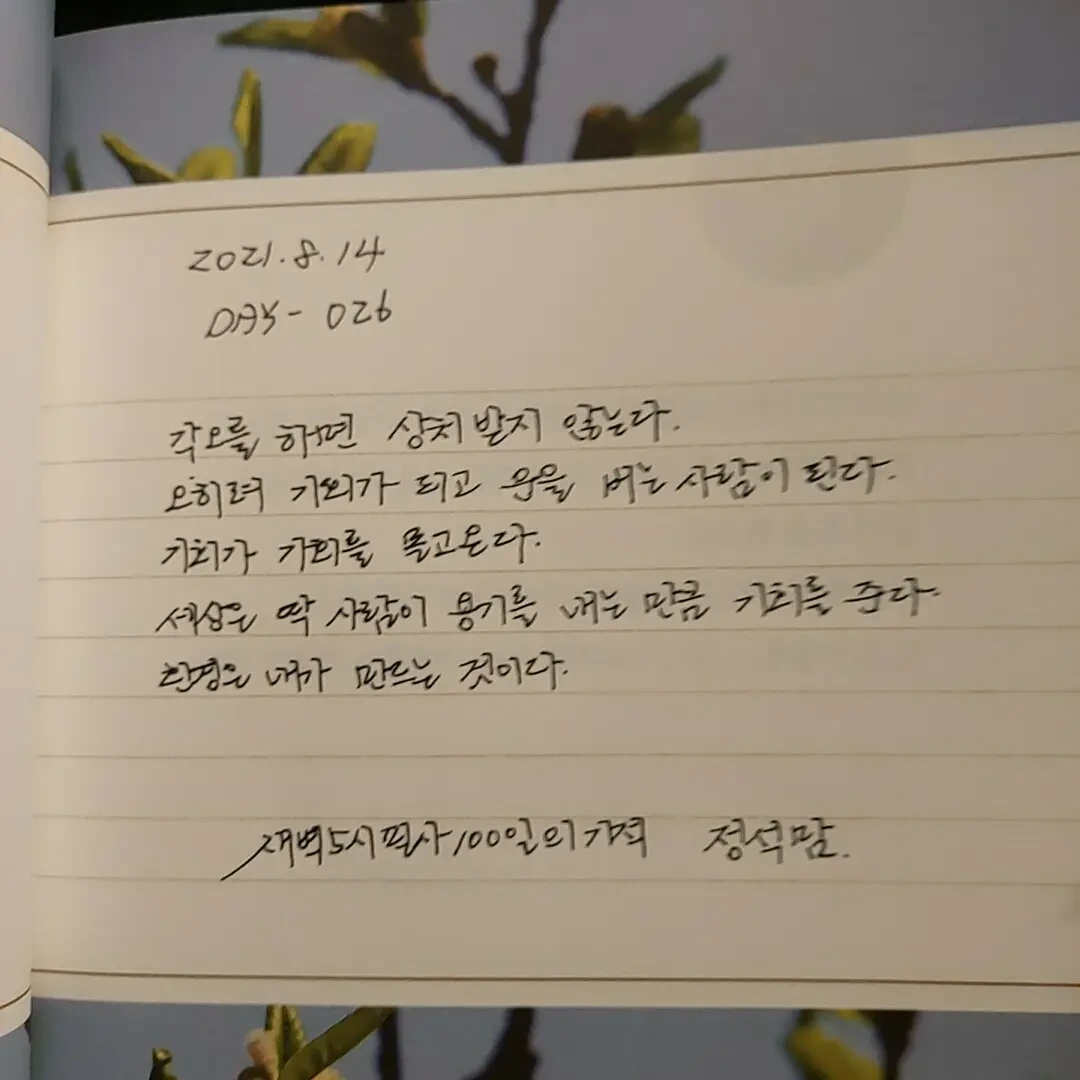 2021.8.14
DAY- 026
각오를 하면 상처 받지 않는다.
오히려 기회가 되고 운을 버는 사람이 된다.
기회가 기회를 몰고온다.
세상은 딱 사람이 용기를 내는 만큼 기회를 준다.
환경은 내가 만드는 것이다.
새벽5시필사100일의기적 정석맘.